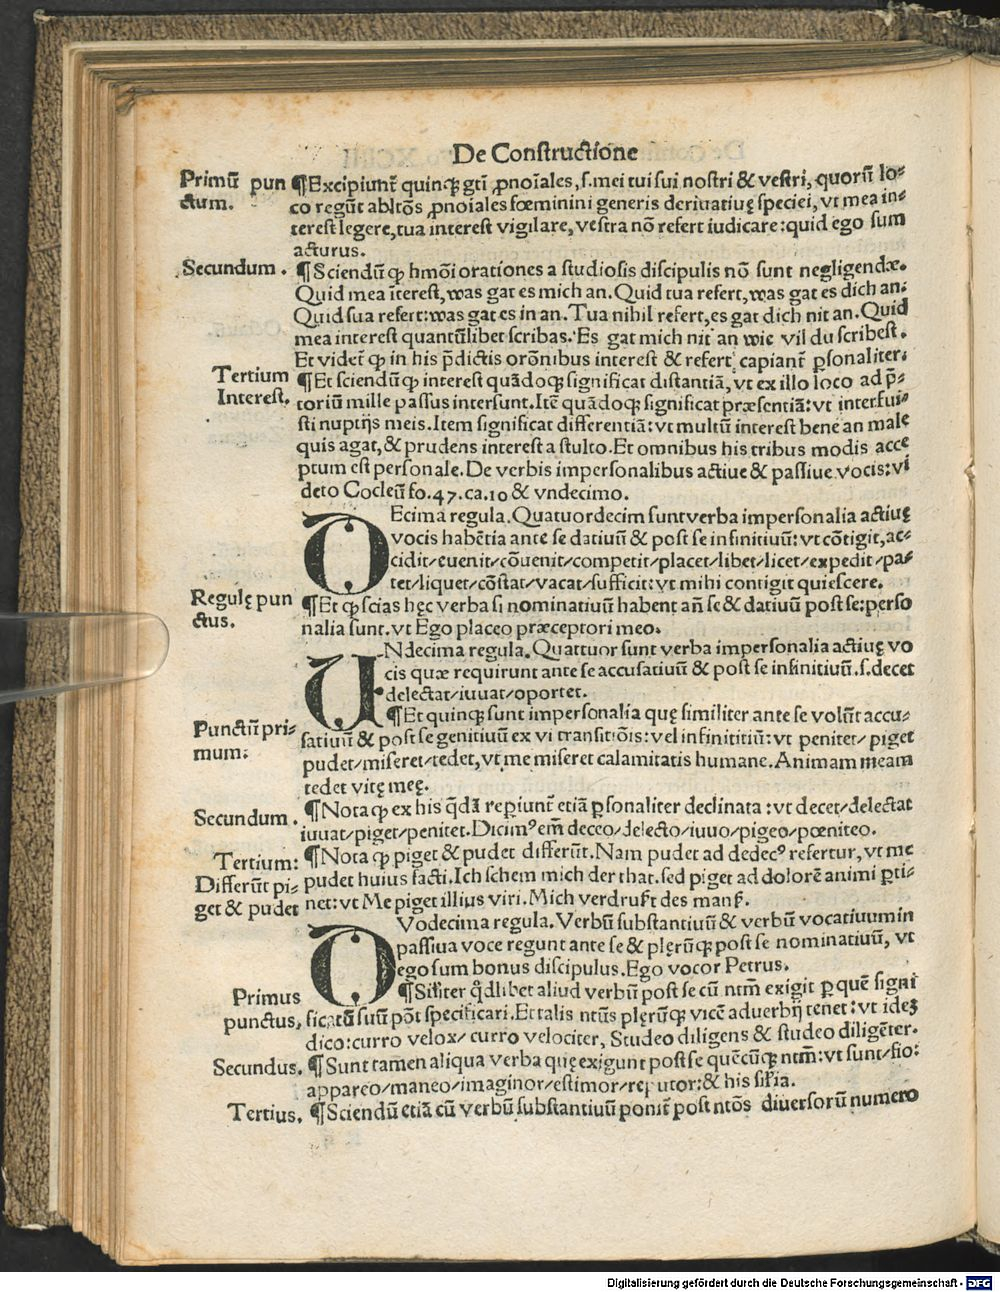 De Constructione
Primū pun
ctum.
¶Excipiunt̄ quinqꝫ gt̄i ꝓnoīales, s. mei tui sui nostri & vestri, quorū lo⸗
co regūt abltōs ꝓnoiales fœminini generis deriuatiuę speciei, vt mea in⸗
terest legere, tua interest vigilare, vestra nō refert iudicare: quid ego sum
acturus.
Secundum.
¶Sciendū ꝙ hmōi orationes a studiosis discipulis nō sunt negligendæ.
Quid mea īterest, was gat es mich an. Quid tua refert, was gat es dich an.
Quid sua refert: was gat es in an. Tua nihil refert, es gat dich nit an. Quid
mea interest quantūlibet scribas. Es gat mich nit an wie vil du scribest.
Et videt̄ ꝙ in his p̄dictis orōnibus interest & refert capiant̄ ꝑsonaliter.
Tertium
Interest.
¶Et sciendū ꝙ interest quādoqꝫ significat distantiā, vt ex illo loco ad p̄⸗
toriū mille passus intersunt. Itē quādoqꝫ significat præsentiā: vt interfui⸗
sti nuptijs meis. Item significat differentiā: vt multū interest bene an male
quis agat, & prudens interest a stulto. Et omnibus his tribus modis acce
ptum est personale. De verbis impersonalibus actiue & passiue vocis: vi
deto Cocleū fo. 47. ca. 10 & vndecimo.
DEcima regula. Quatuordecim sunt verba impersonalia actiuę
vocis habētia ante se datiuū & post se infinitiuū: vt cōtigit, ac⸗
cidit/euenit/cōuenit/competit/placet/libet/licet/expedit/pa⸗
tet/liquet/cōstat/vacat/sufficit: vt mihi contigit quiescere.
Regulę pun
ctus.
¶Et ꝙ scias hęc verba si nominatiuū habent an̄ se & datiuū post se: perso
nalia sunt. vt Ego placeo præceptori meo.
UNdecima regula. Quattuor sunt verba impersonalia actiuę vo
cis quæ requirunt ante se accusatiuū & post se infinitiuū. s. decet
delectat/iuuat/oportet.
Punctū pri⸗
mum:
¶Et quinqꝫ sunt impersonalia quę similiter ante se volūt accu⸗
satiuū & post se genitiuū ex vi transitiōis: vel infinititiū: vt penitet/piget
pudet/miseret/tedet, vt me miseret calamitatis humane. Animam meam
tedet vitę meę.
Secundum.
¶Nota ꝙ ex his q̄dā reꝑiunt̄ etiā ꝑsonaliter declinata: vt decet/delectat
iuuat/piget/penitet. Dicimꝰ em̄ deceo/delecto/iuuo/pigeo/pœniteo.
Tertium:
Differūt pi⸗
get & pudet
¶Nota ꝙ piget & pudet differūt. Nam pudet ad dedecꝰ refertur, vt me
pudet huius facti. Ich schem mich der that. sed piget ad dolorē animi ꝑti⸗
net: vt Me piget illius viri. Mich verdruſt des manſ.
DVodecima regula. Verbū substantiuū & verbū vocatiuum in
passiua voce regunt ante se & plęrūqꝫ post se nominatiuū, vt
ego sum bonus discipulus. Ego vocor Petrus.
Primus
punctus,
¶Sil̄iter q̄dlibet aliud verbū post se cū ntm̄ exigit ꝑ quē signi
ficatū suū pōt specificari. Et talis ntūs plęrūqꝫ vicē aduerbij tenet: vt ideꝫ
dico: curro velox/curro velociter, Studeo diligens & studeo diligēter.
Secundus.
¶Sunt tamen aliqua verba quę exigunt post se quēcūqꝫ ntm̄: vt sunt/fio:
appareo/maneo/imaginor/estimor/reputor: & his sil̄ia.
Tertius.
¶Sciendū etiā cū verbū substantiuū ponit̄ post ntōs diuersorū numero
Digitalisierung gefördert durch die Deutsche Forschungsgemeinschaft - DFG